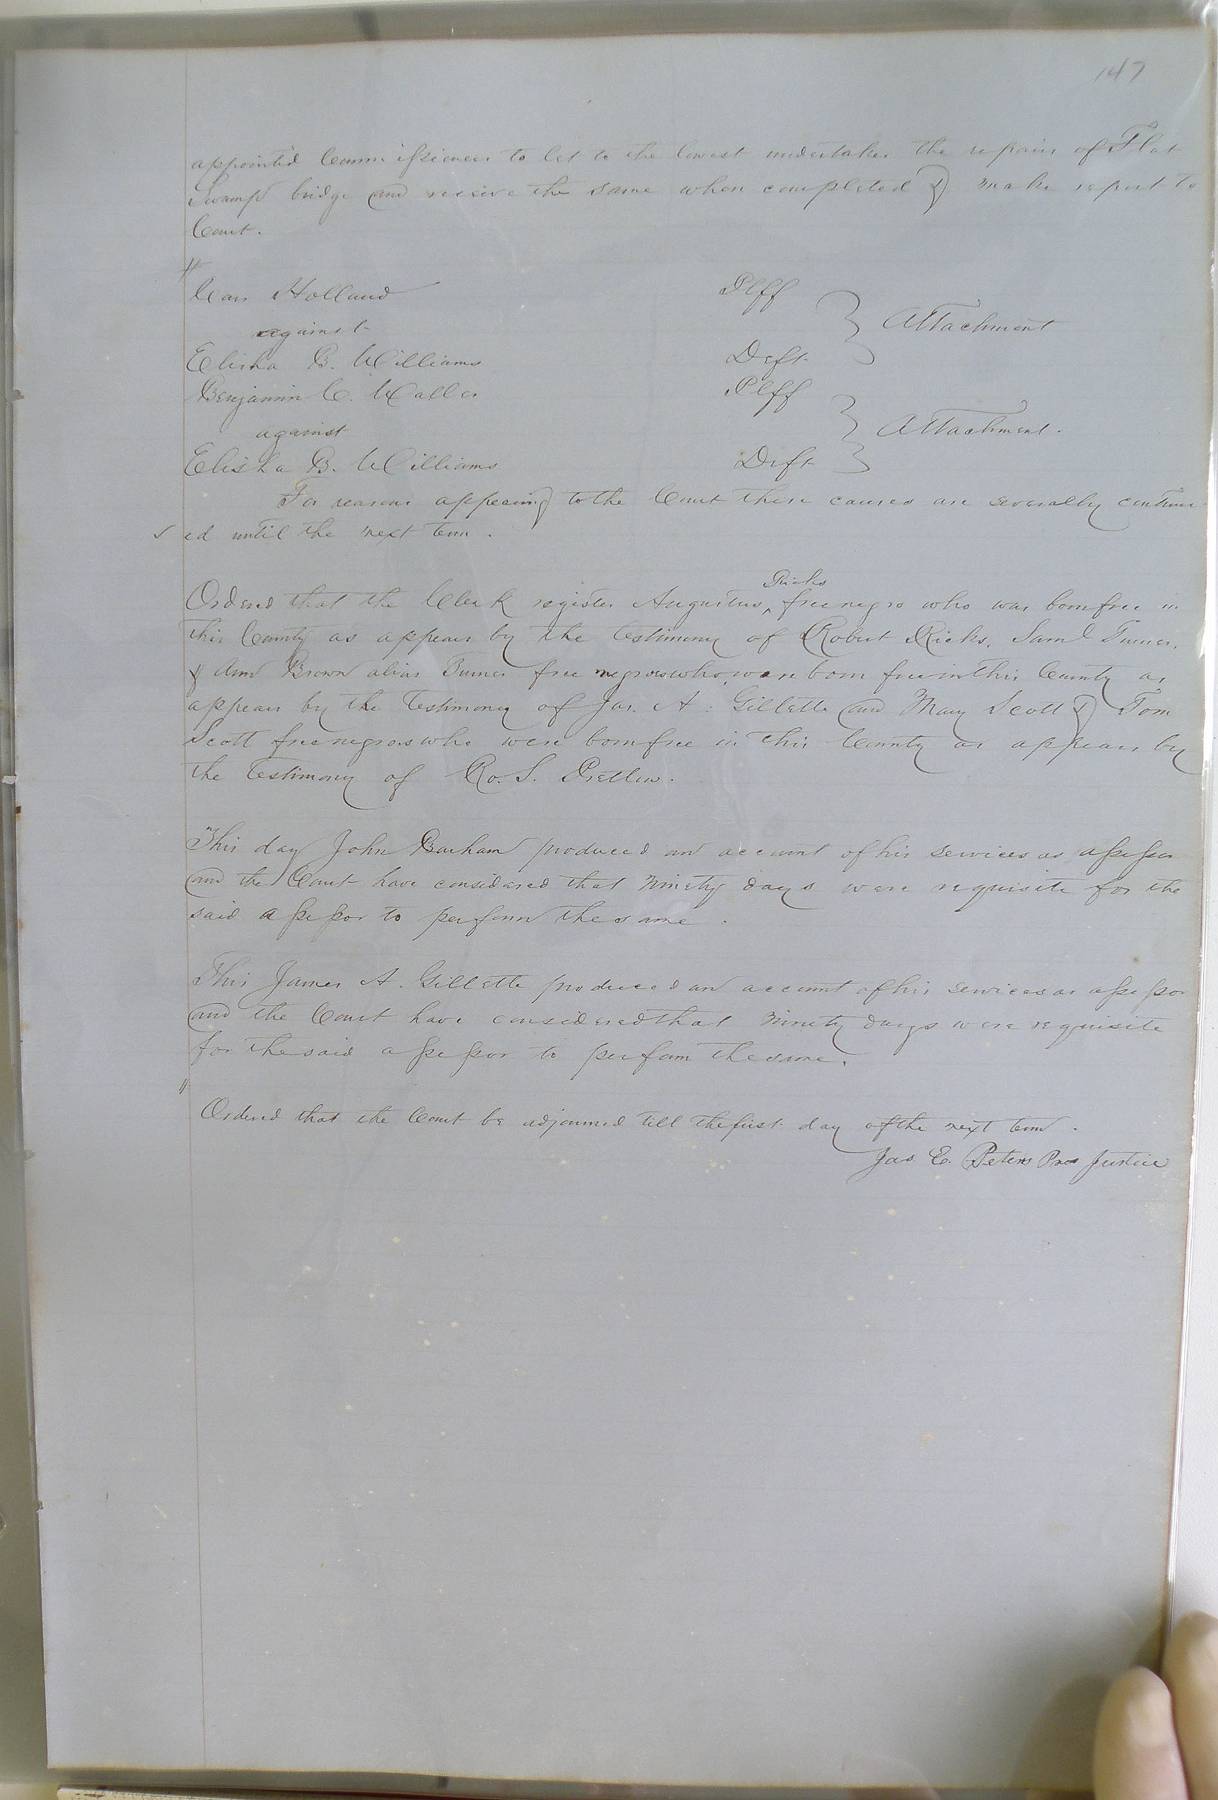 147
appointed Commissioners to let to the lowest undertaker the repairs of Flat
Swamp bridge and receive the same when completed & make report to
Court.
Holland Plff
against Attachment
Elisha B. Williams Deft
Benjamin C. Waller Plff
against Attachment.
Elisha B. Williams Deft
For reasons appearing to the Court these causes are severally continu-
ed until the next term.
Ricks
Ordered that the Clerk register Augustus ^ free negro who was born free in
this County as appears by the testimony of Robert Ricks, Saml Turner,
& Ann Brown alias Turner free negroes who were born free in this County as
appears by the testimony of Jas. A. Gillette and Mary Scott & Tom
Scott free negroes who were born free in this County as appears by
the testimony of Ro. S. Pretlow.
This day John Barham produced an account of his services as assessor
and the Court have considered that ninety days were requisite for the
said assessor to perform the same.
This James A. Gillette produced an account of his services as assessor
and the Court have considered that ninety days were requisite
for the said assessor to perform the same.
Ordered that the Court be adjourned till the first day of the next term.
Jas E. Peters Pres Justice